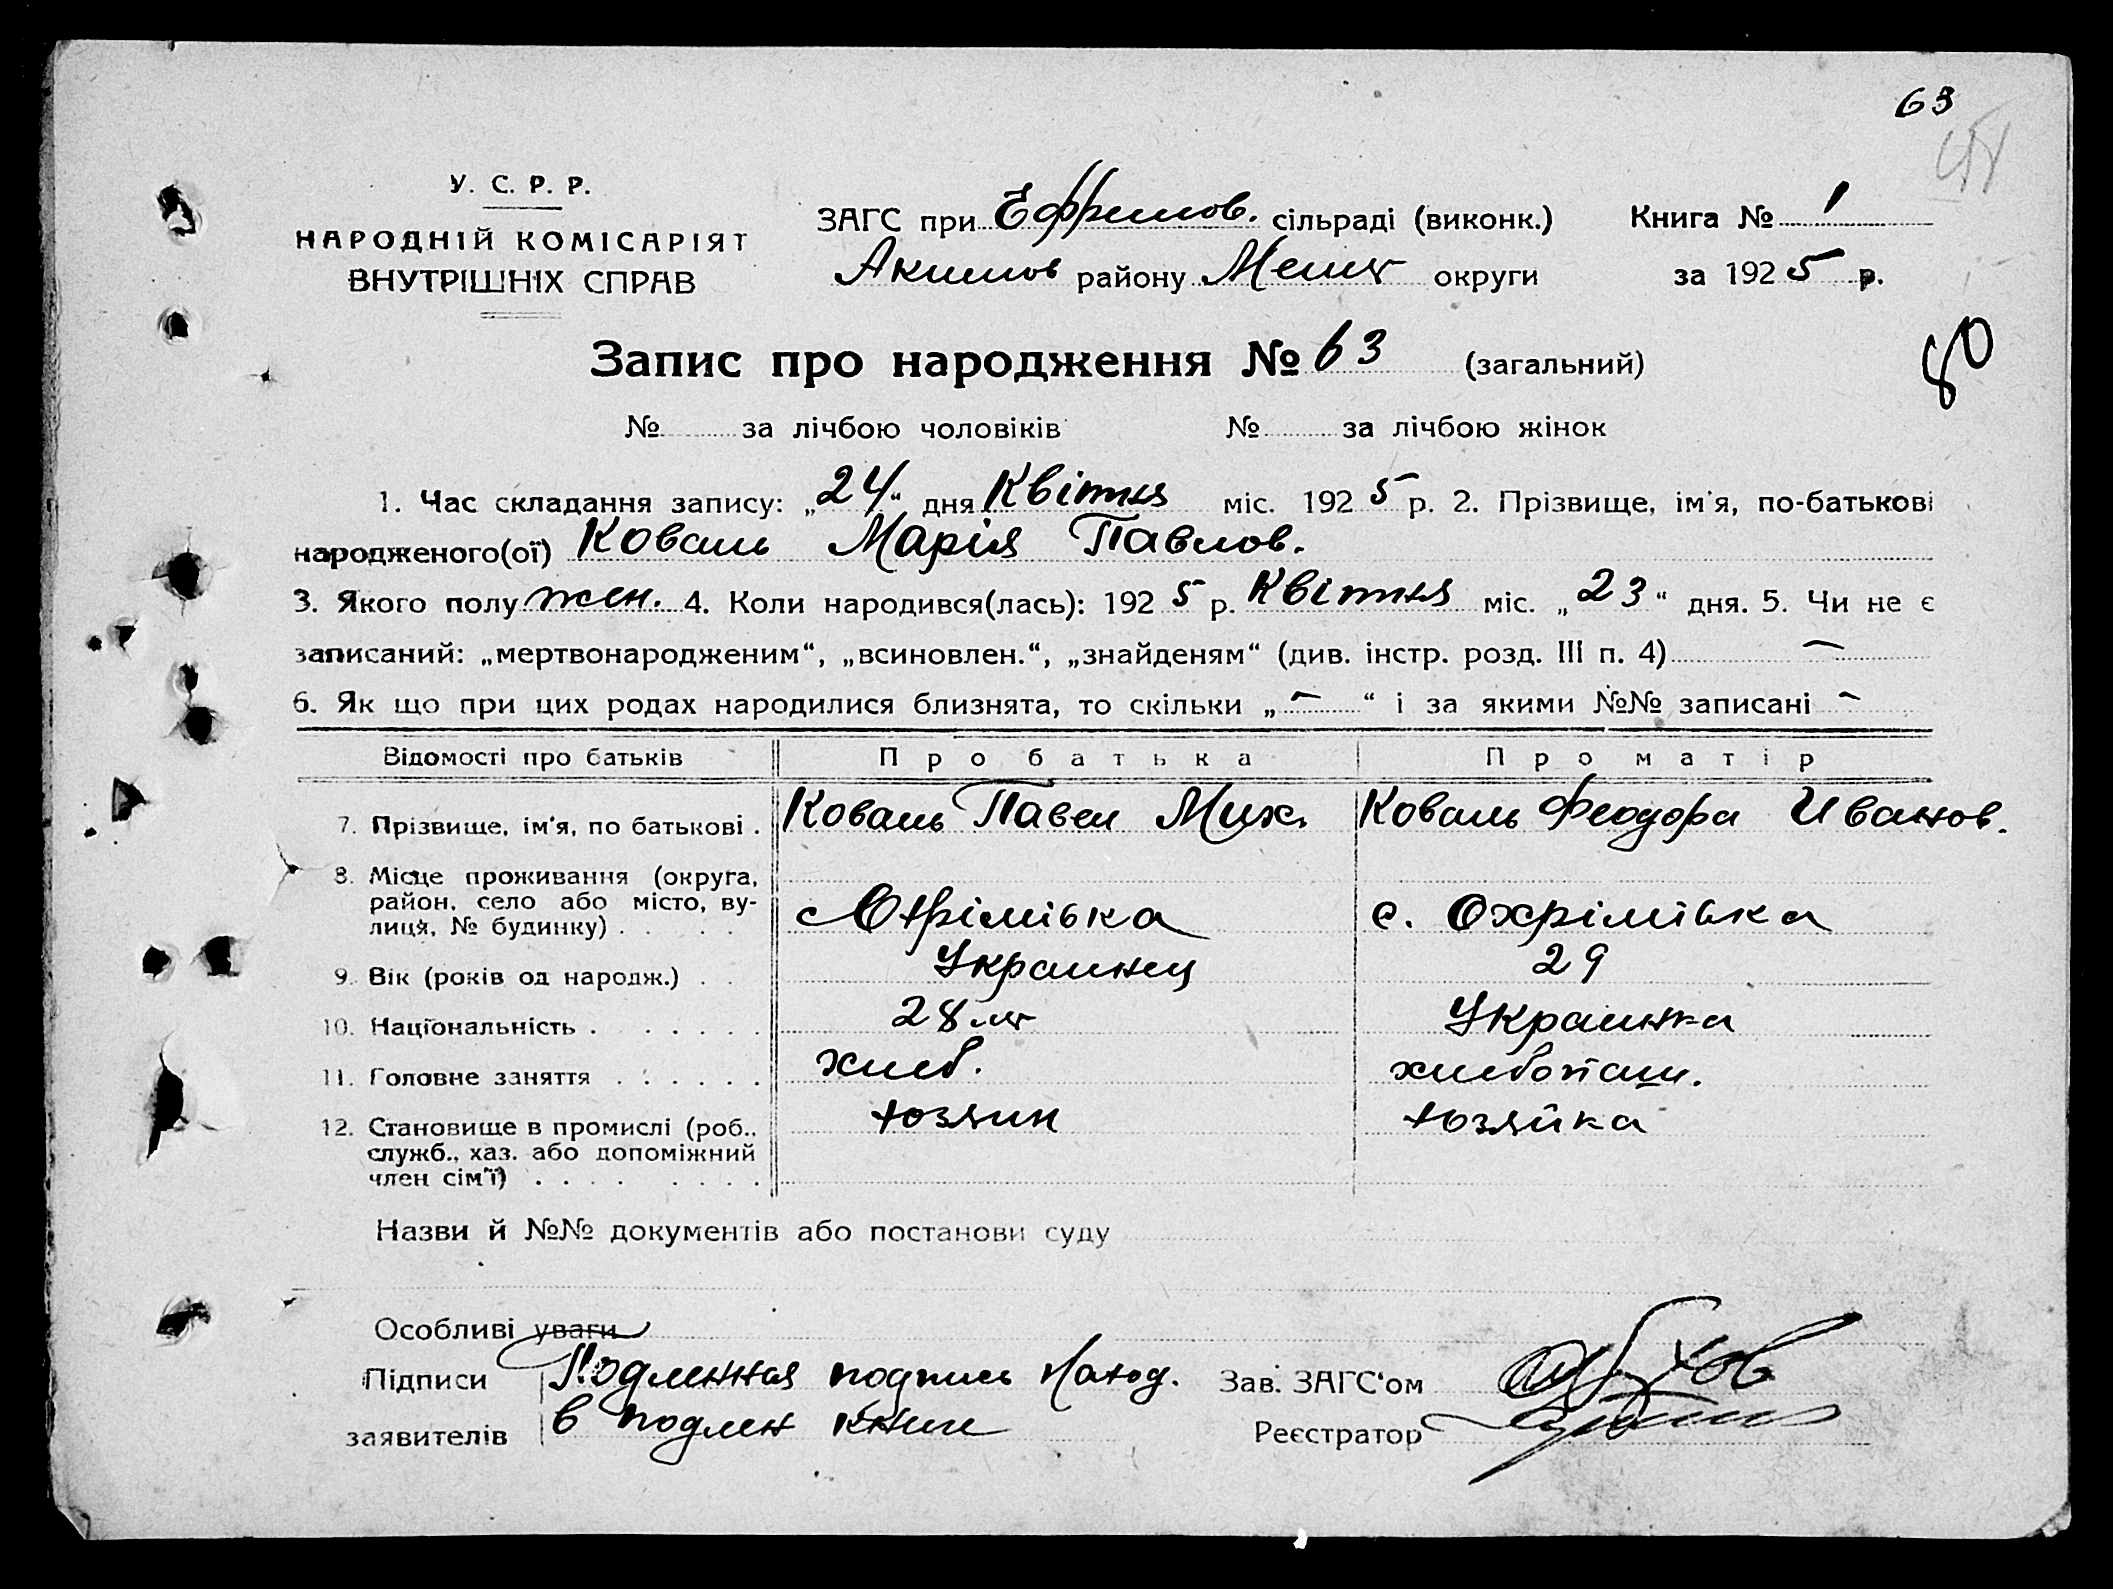 63
У. С. Р. Р.
НАРОДНІЙ КОМІСАРІЯТ
ВНУТРІШНІХ СПРАВ
ЗАГС при Ефремов. сільраді (виконк.) Книга № 1
Акимов району Мелит округи за 1925 р.
Запис про народження № 63 (загальний)
80
№ за лічбою чоловіків № за лічбою жінок
1. Час складання запису: „24“ дня Квітня міс. 1925 р. 2. Прізвище, ім'я, по-батькові
народженого(ої) Коваль Марія Павлов.
3. Якого полу жен. 4. Коли народився(лась): 1925 р. Квітня міс. „23“ дня. 5. Чи не є
записаний: „мертвонародженим“, „всиновлен.“, „знайденям“ (див. інстр. розд. III п. 4) —
6. Як що при цих родах народилися близнята, то скільки „—“ і за якими №№ записані —
Відомості про батьків Про батька Про матір
7. Прізвище, ім'я, по батькові . Коваль Павел Мих. Коваль Феодора Иванов.
8. Місце проживання (округа,
район, село або місто, ву-
лиця, № будинку) . . . . с Охрімівка с. Охрімівка
9. Вік (років од народж.) . . Украинец 29
10. Національність . . . . . . 28 лет Украинка
11. Головне заняття . . . . . . хлеб. хлебопаш.
12. Становище в промислі (роб.. хозяин хозяйка
служб., хаз. або допоміжний
член сім'ї) . . . . . . . .
Назви й №№ документів або постанови суду
Особливі уваги
Підписи Подленная подпись наход. Зав. ЗАГС'ом
заявителів в подлен книге Реєстратор